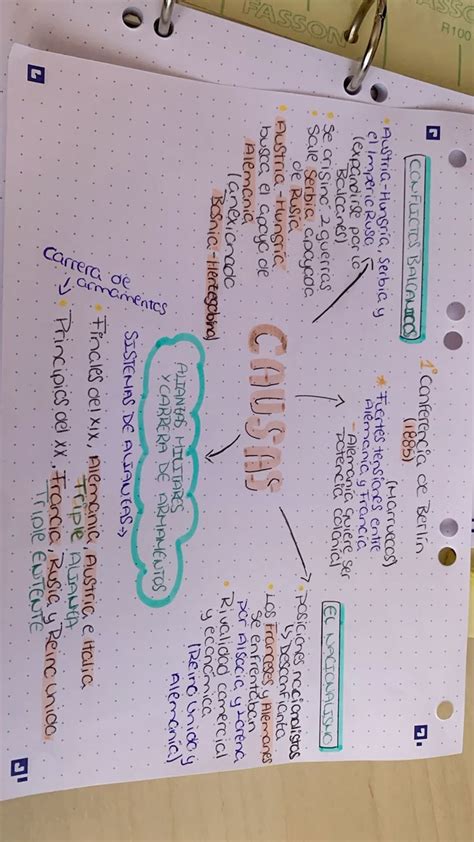 FASSON
R100
CONFLICTOS BALCANICOS
Austria-Hungría, Serbia y
el Imperio Ruso
(expandirse por lo
Balcanes)
Se origino 2 guerras
Sale Serbia apoyada
de Rusia
Austria-Hungria
busca el apoyo de
Alemania
(anexionado
1º Conferencia de Berlín
(1885)
(Marruecos)
Fuertes tensiones entre
Alemania y Francia
- Alemania quiere ser
potencia colonial
EL NACIONALISMO
Posiciones nacionalistas
↳ Desconfianza
Los Franceses y Alemanes
se enfrentaban
por Alsacia y Lorena
Rivalidad comercial
y económica
(Reino Unido y
Alemania)
CAUSAS
ALIANZAS MILITARES
Y CARRERA DE ARMAMENTOS
SISTEMAS DE ALIANZAS →
Finales del XIX, Alemania, Austria e Italia
TRIPLE ALIANZA
Principios del XX, Francia, Rusia y Reino Unido,
TRIPLE ENTENTE
Carrera de
armamentos